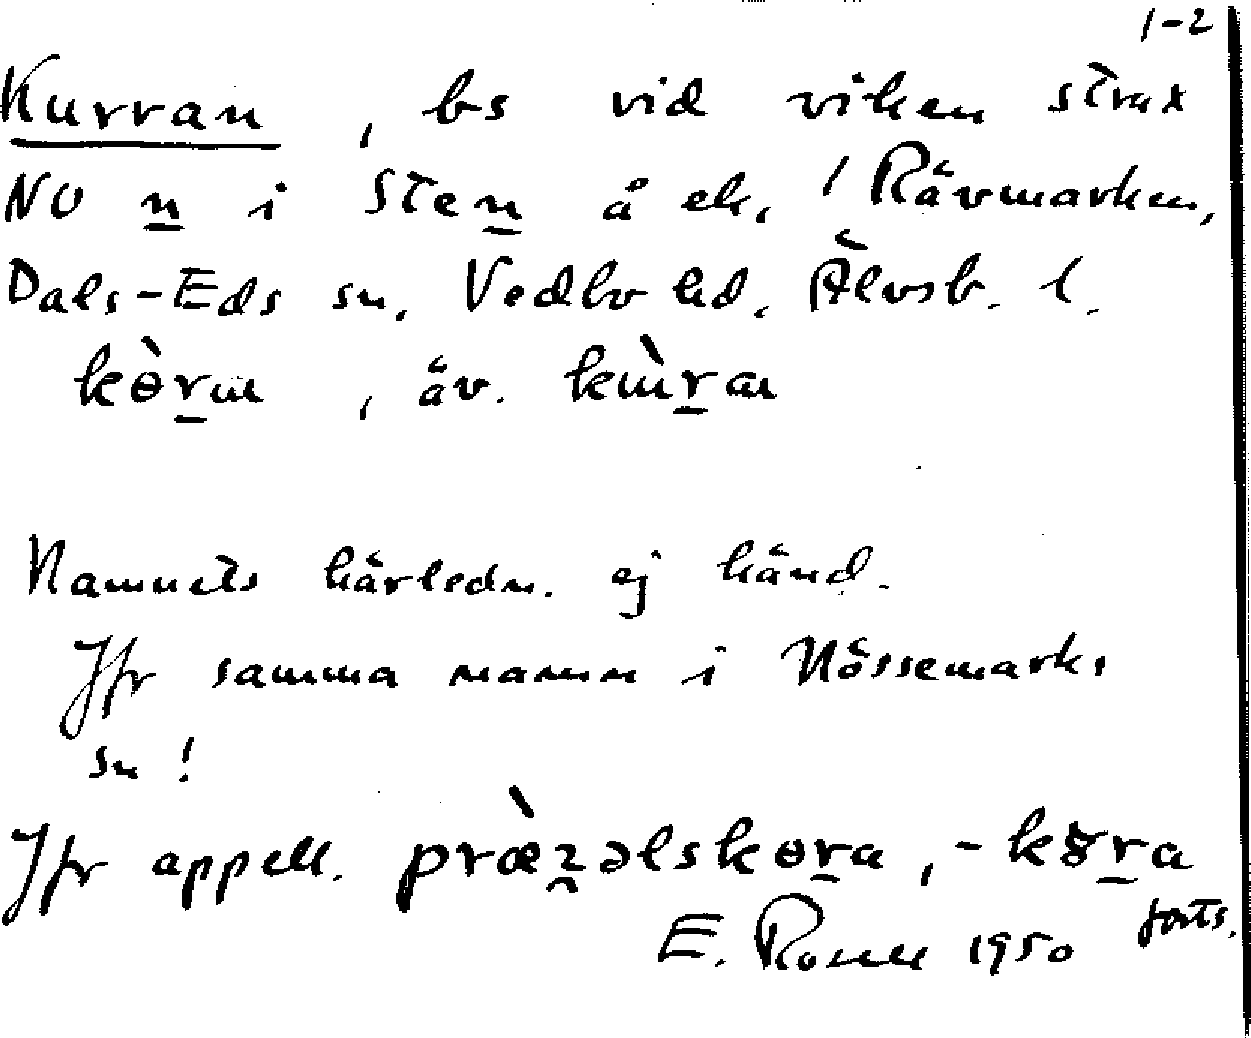 1-2
Kurran, bs vid viken strax
NO n i Sten å ek, / Rävmarken,
Dals-Eds sn, Vedbo hd. Älvsb. l.
kɵ̀r̠an, äv. kɯ̀r̠an
Namnets härledn. ej känd.
Jfr samma namn i Nössemarks
sn!
Jfr appell. præ̀ʒəlskɵr̠a, -kɵr̠a
forts.
E. Rosell 1950